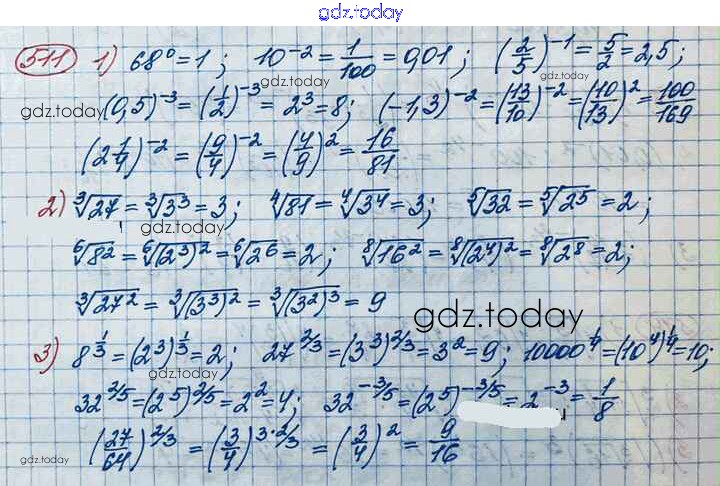 gdz.today
511 1) 68⁰ = 1; 10⁻² = 1/100 = 0,01; (2/5)⁻¹ = 5/2 = 2,5;
gdz.today
gdz.today
gdz.today
(0,5)⁻³ = (1/2)⁻³ = 2³ = 8; (-1,3)⁻² = (13/10)⁻² = (10/13)² = 100/169
(2 1/4)⁻² = (9/4)⁻² = (4/9)² = 16/81
2) ∛27 = ∛3³ = 3; ∜81 = ∜3⁴ = 3; ⁵√32 = ⁵√2⁵ = 2;
gdz.today
⁶√8² = ⁶√(2³)² = ⁶√2⁶ = 2; ⁸√16² = ⁸√(2⁴)² = ⁸√2⁸ = 2;
gdz.today
∛27² = ∛(3³)² = ∛(3²)³ = 9
gdz.today
3) 8^(1/3) = (2³)^(1/3) = 2; 27^(2/3) = (3³)^(2/3) = 3² = 9; 10000^(1/4) = (10⁴)^(1/4) = 10;
gdz.today
32^(2/5) = (2⁵)^(2/5) = 2² = 4; 32^(-3/5) = (2⁵)^(-3/5) = 2⁻³ = 1/8
(27/64)^(2/3) = (3/4)^(3·2/3) = (3/4)² = 9/16
gdz.today
gdz.today